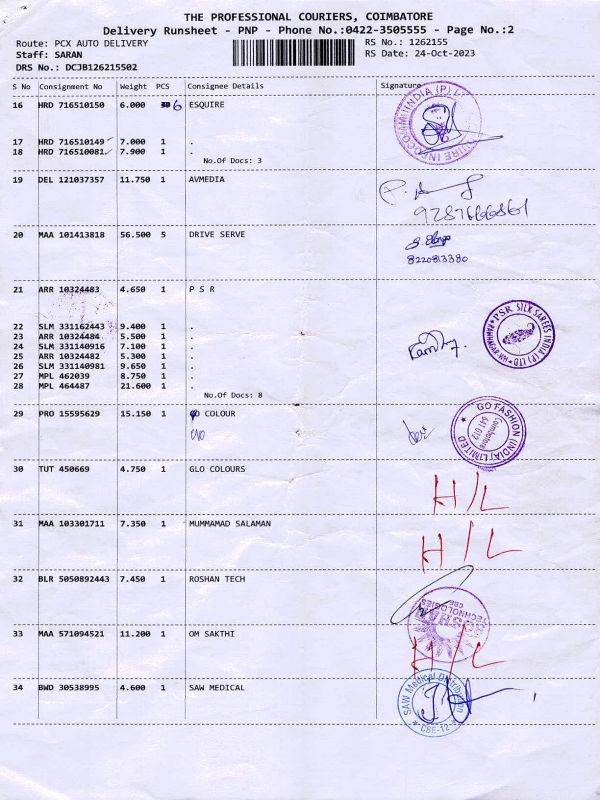 THE PROFESSIONAL COURIERS, COIMBATORE
Delivery Runsheet - PNP - Phone No.:0422-3505555 - Page No.:2
Route: PCX AUTO DELIVERY RS No.: 1262155
Staff: SARAN RS Date: 24-Oct-2023
DRS No.: DCJB126215502
S No Consignment No Weight PCS Consignee Details Signature
16 HRD 716510150 6.000 6 ESQUIRE
17 HRD 716510149 7.000 1 .
18 HRD 716510081 7.900 1 .
No.Of Docs: 3
19 DEL 121037357 11.750 1 AVMEDIA
9287666861
20 MAA 101413818 56.500 5 DRIVE SERVE
8220813380
21 ARR 10324483 4.650 1 P S R
PSR SILK SAREES INDIA (P) LTD
22 SLM 331162443 9.400 1 .
23 ARR 10324484 5.500 1 .
24 SLM 331140916 7.100 1 .
25 ARR 10324482 5.300 1 .
26 SLM 331140981 9.650 1 .
27 MPL 462039 8.750 1 .
28 MPL 464487 21.600 1 .
No.Of Docs: 8
29 PRO 15595629 15.150 1 GO COLOUR
GO FASHION (INDIA) LIMITED
Coimbatore
641 012
30 TUT 450669 4.750 1 GLO COLOURS
H/L
31 MAA 103301711 7.350 1 MUMMAMAD SALAMAN
H/L
32 BLR 5050892443 7.450 1 ROSHAN TECH
TECHNOLOGIES
CBE
33 MAA 571094521 11.200 1 OM SAKTHI
H/L
34 BWD 30538995 4.600 1 SAW MEDICAL
SAW Medical Distribution
CBE-12